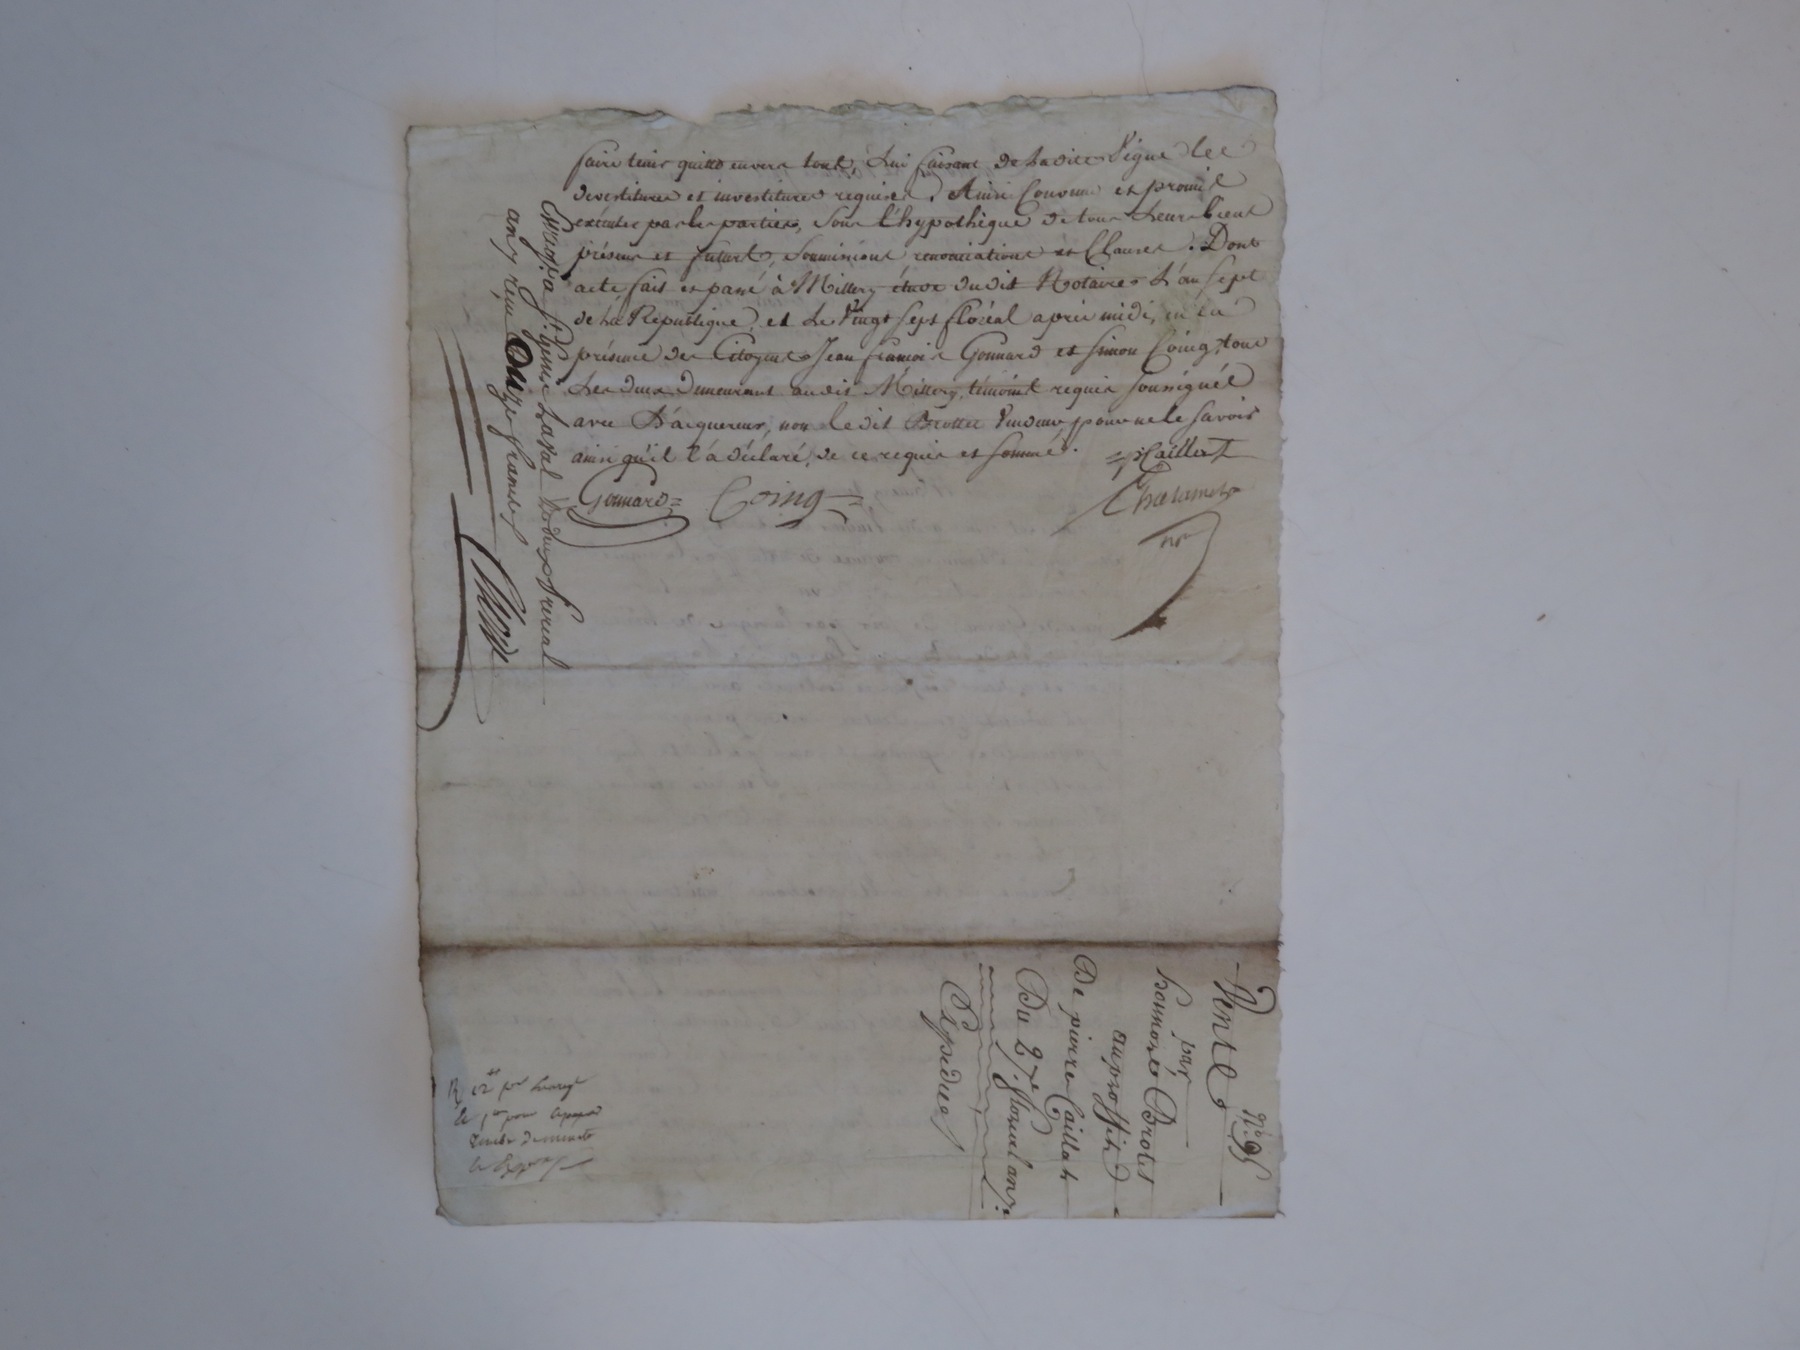 faire tenir quitte envers tous, Lui faisant de Ladite Vigne les
devestitures et investitures requises. Ainsi Convenu et promis
exécuter par les parties, sous l'hypothèque de tous Leurs biens
présens et futurs, soumissions renonciations et Clauses. Dont
acte fait et passé à Millery étude dudit Notaire L'an sept
de la République, et Le Vingt sept floréal après midi, en La
présence des Citoyens Jean françois Gonnard et Simon Coing, tous
Les deux demeurant audit Millery, témoins requis soussignés
avec L'acquereur, non le dit Brottet Vendeur pour ne le savoir
ainsi qu'il l'a déclaré, de ce requis et sommé.
p: Caillat
Gonnard Coing
Chalamel
nre
Enregé. a St. Genis Laval
an 7 reçu Douze francs
N°. 95
Vente
par
honnoré Brotet
au proffit
De pierre Caillat
Du 27e. floreal an 7.
Expediée